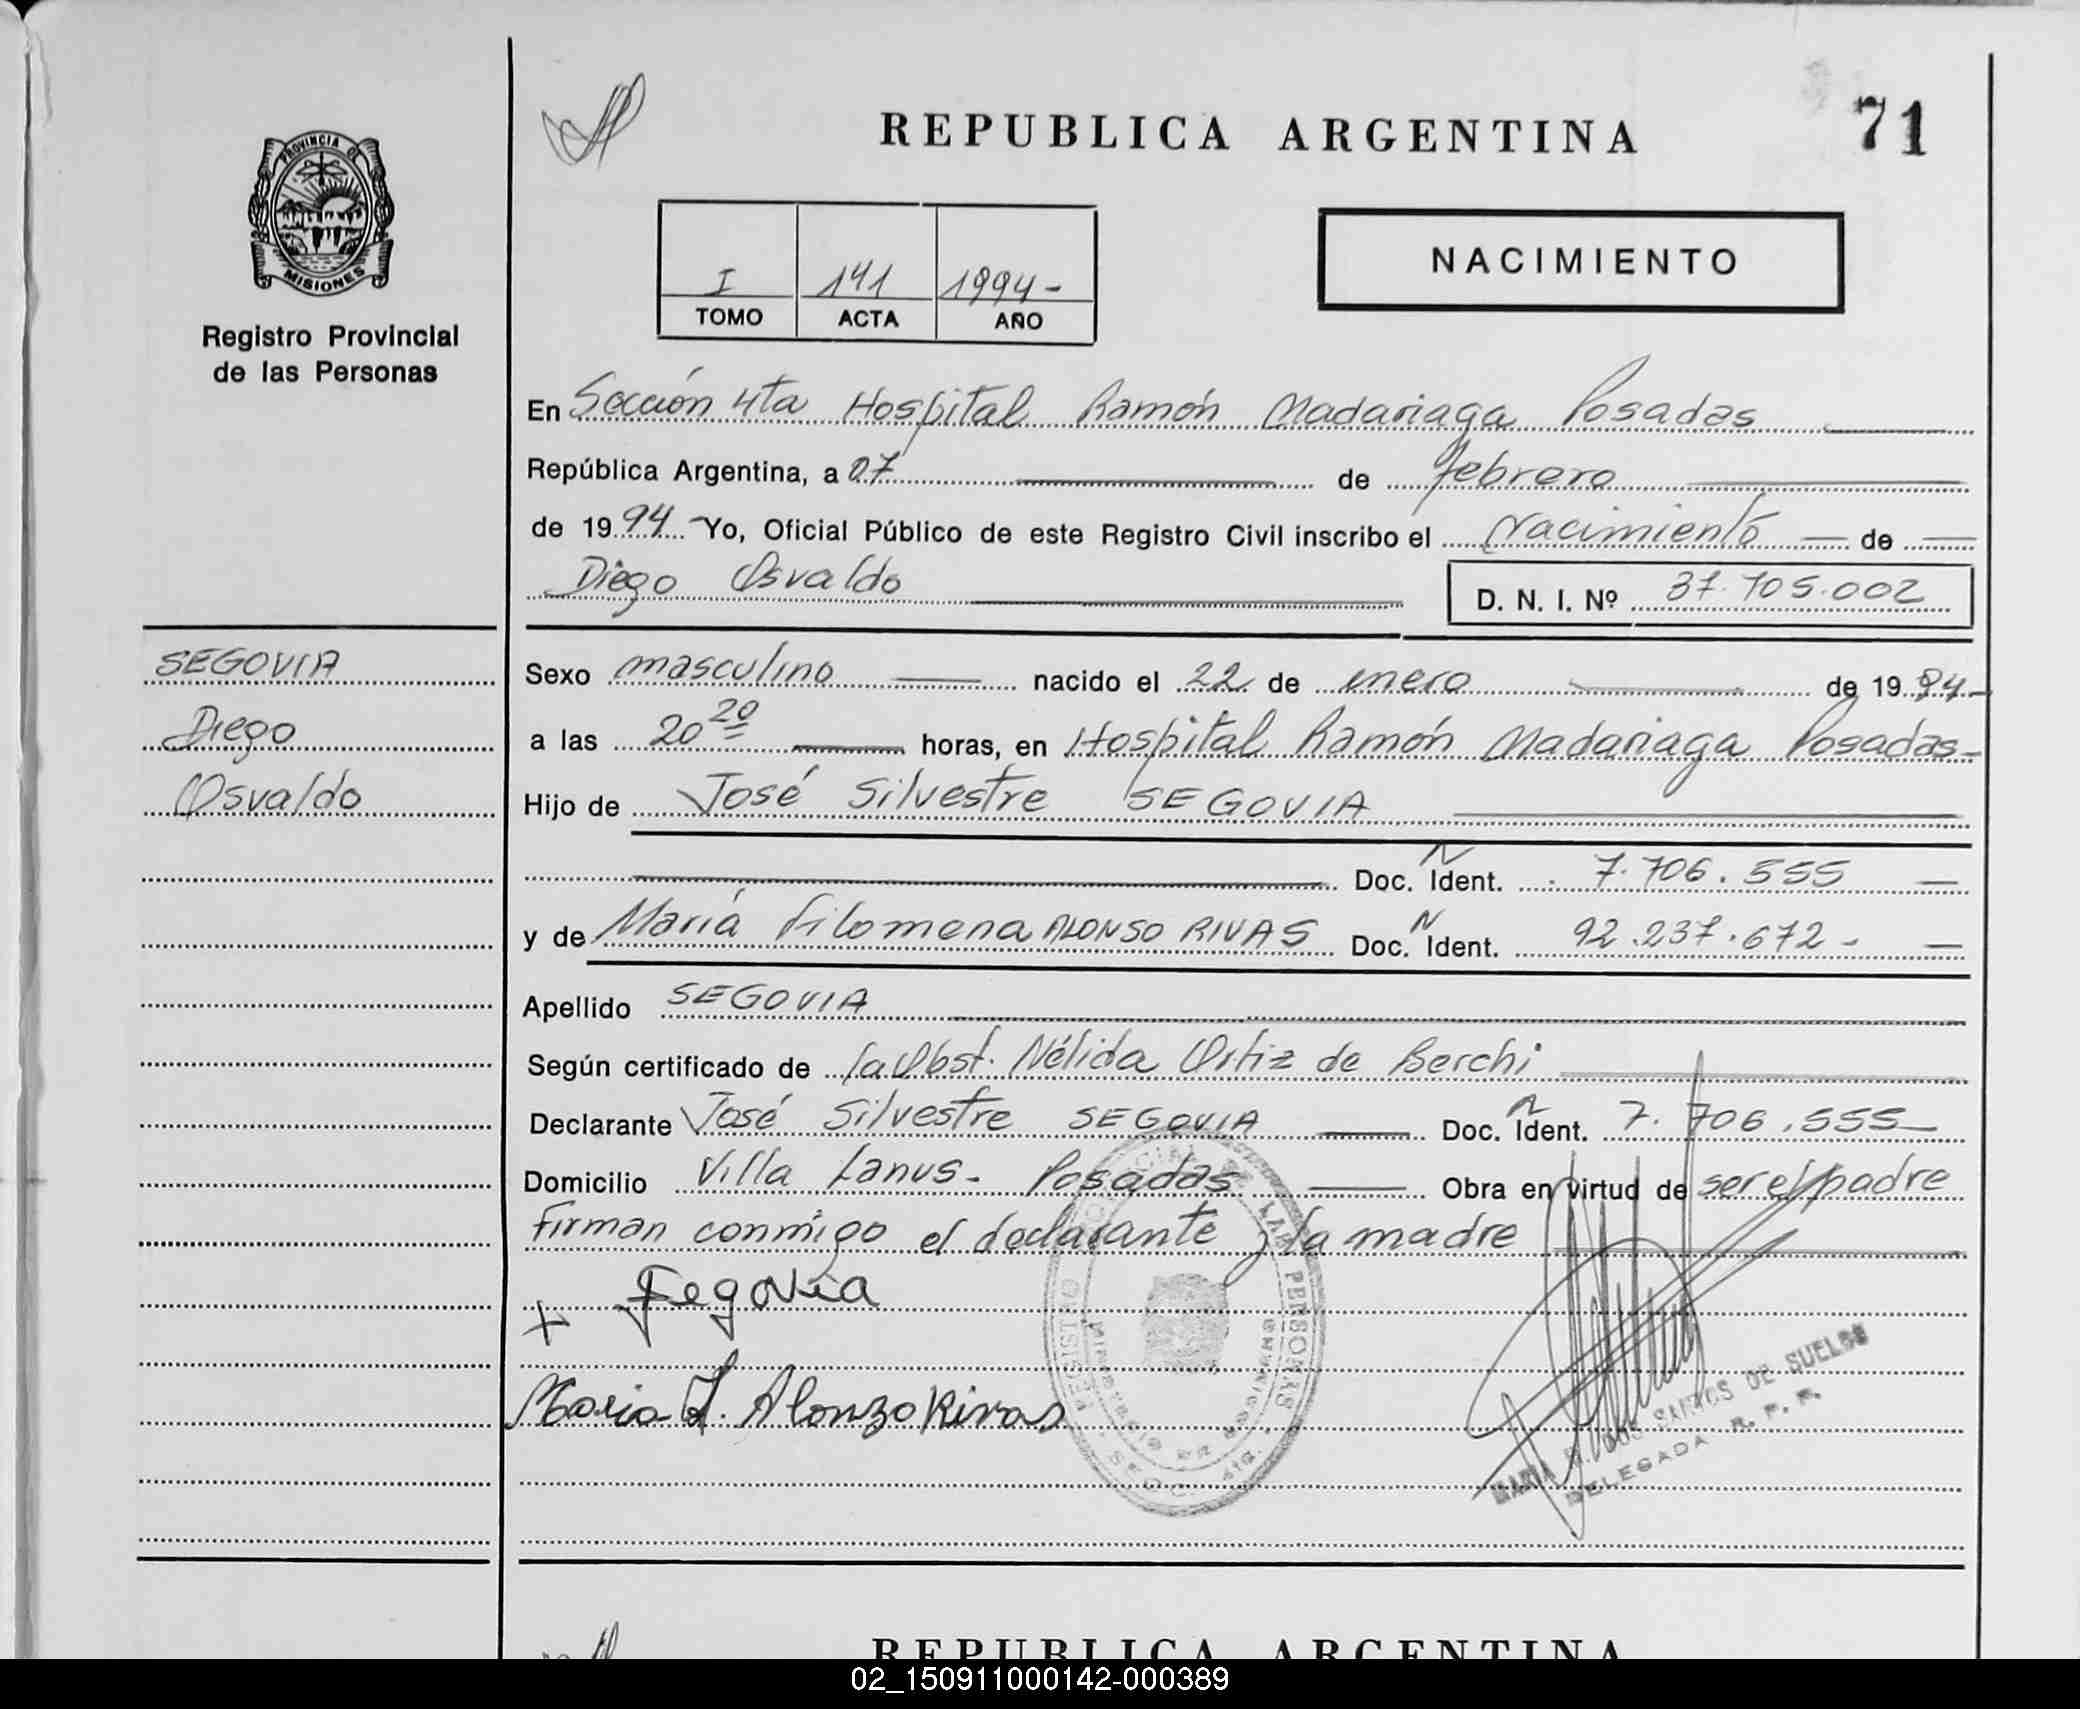 REPUBLICA ARGENTINA
71
PROVINCIA DE
MISIONES
Registro Provincial
de las Personas
I 141 1994-
TOMO ACTA AÑO
NACIMIENTO
En Sección 4ta Hospital Ramón Madariaga Posadas
República Argentina, a 07 de febrero
de 1994 Yo, Oficial Público de este Registro Civil inscribo el Nacimiento de
Diego Osvaldo D. N. I. Nº 37.705.002
SEGOVIA
Diego
Osvaldo
Sexo masculino nacido el 22 de enero de 1994-
a las 20 20 horas, en Hospital Ramón Madariaga Posadas-
Hijo de José Silvestre SEGOVIA
Doc. N Ident. 7.706.555
y de María Filomena ALONSO RIVAS Doc. N Ident. 92.237.672-
Apellido SEGOVIA
Según certificado de la Obst. Nélida Ortiz de Berchi
Declarante José Silvestre SEGOVIA Doc. N Ident. 7.706.555
Domicilio Villa Lanus- Posadas Obra en virtud de ser el padre
Firman conmigo el declarante y la madre
+ Segovia
Maria F. Alonzo Rivas
REGISTRO PROVINCIAL DE LAS PERSONAS
SECC. 4ta.
MARIA DOS SANTOS DE SUELDO
DELEGADA R. P. P.
REPUBLICA ARGENTINA
02_150911000142-000389